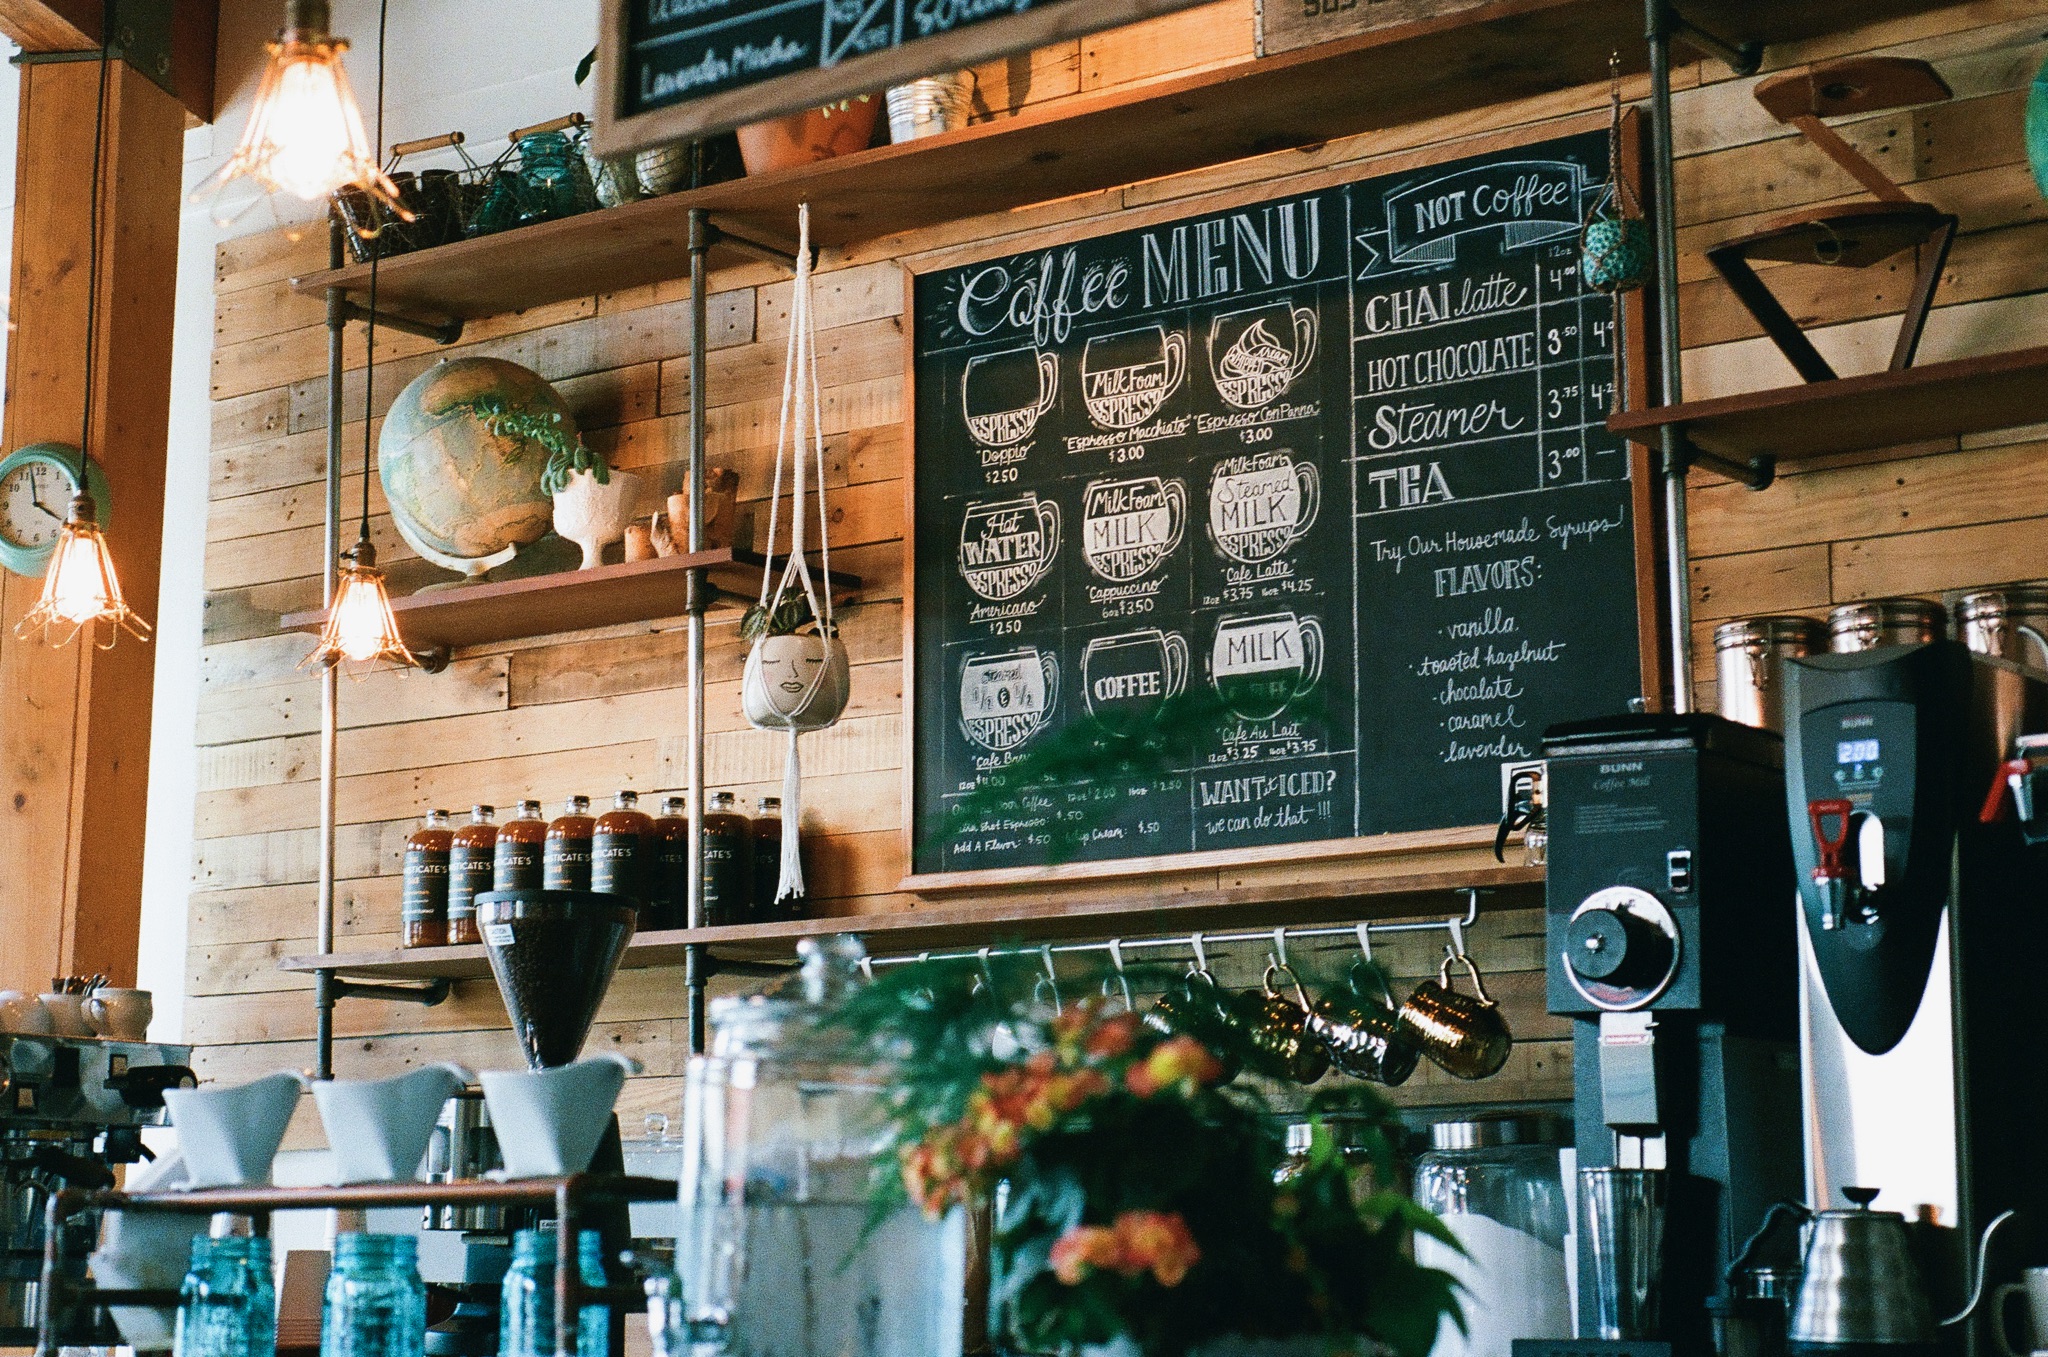 Lavender Mocha
Coffee MENU
ESPRESSO
"Doppio"
$2.50
Milk Foam
ESPRESSO
"Espresso Macchiato"
$3.00
WHIPPED cream
ESPRESSO
"Espresso Con Panna"
$3.00
Hot
WATER
ESPRESSO
"Americano"
$2.50
Milk Foam
MILK
ESPRESSO
"Cappuccino"
6oz $3.50
Milk Foam
Steamed
MILK
ESPRESSO
"Cafe Latte"
12oz $3.75 16oz $4.25
Steamed
1/2 & 1/2
ESPRESSO
"Cafe
12oz
COFFEE
MILK
"Cafe Au Lait"
12oz $3.25 16oz $3.75
Coffee 12oz $2.00 16oz $2.50
Shot Espresso: $.50
Cream: $.50
Add A Flavor: $.50
WANT it ICED?
we can do that !!!
NOT Coffee
12oz
CHAI latte 4.00
HOT CHOCOLATE 3.50
Steamer 3.75
TEA 3.00 —
Try Our Housemade Syrups!
FLAVORS:
· vanilla
· toasted hazelnut
· chocolate
· caramel
· lavender
BUNN
Coffee Mill
BUNN
2:00
CAUTION